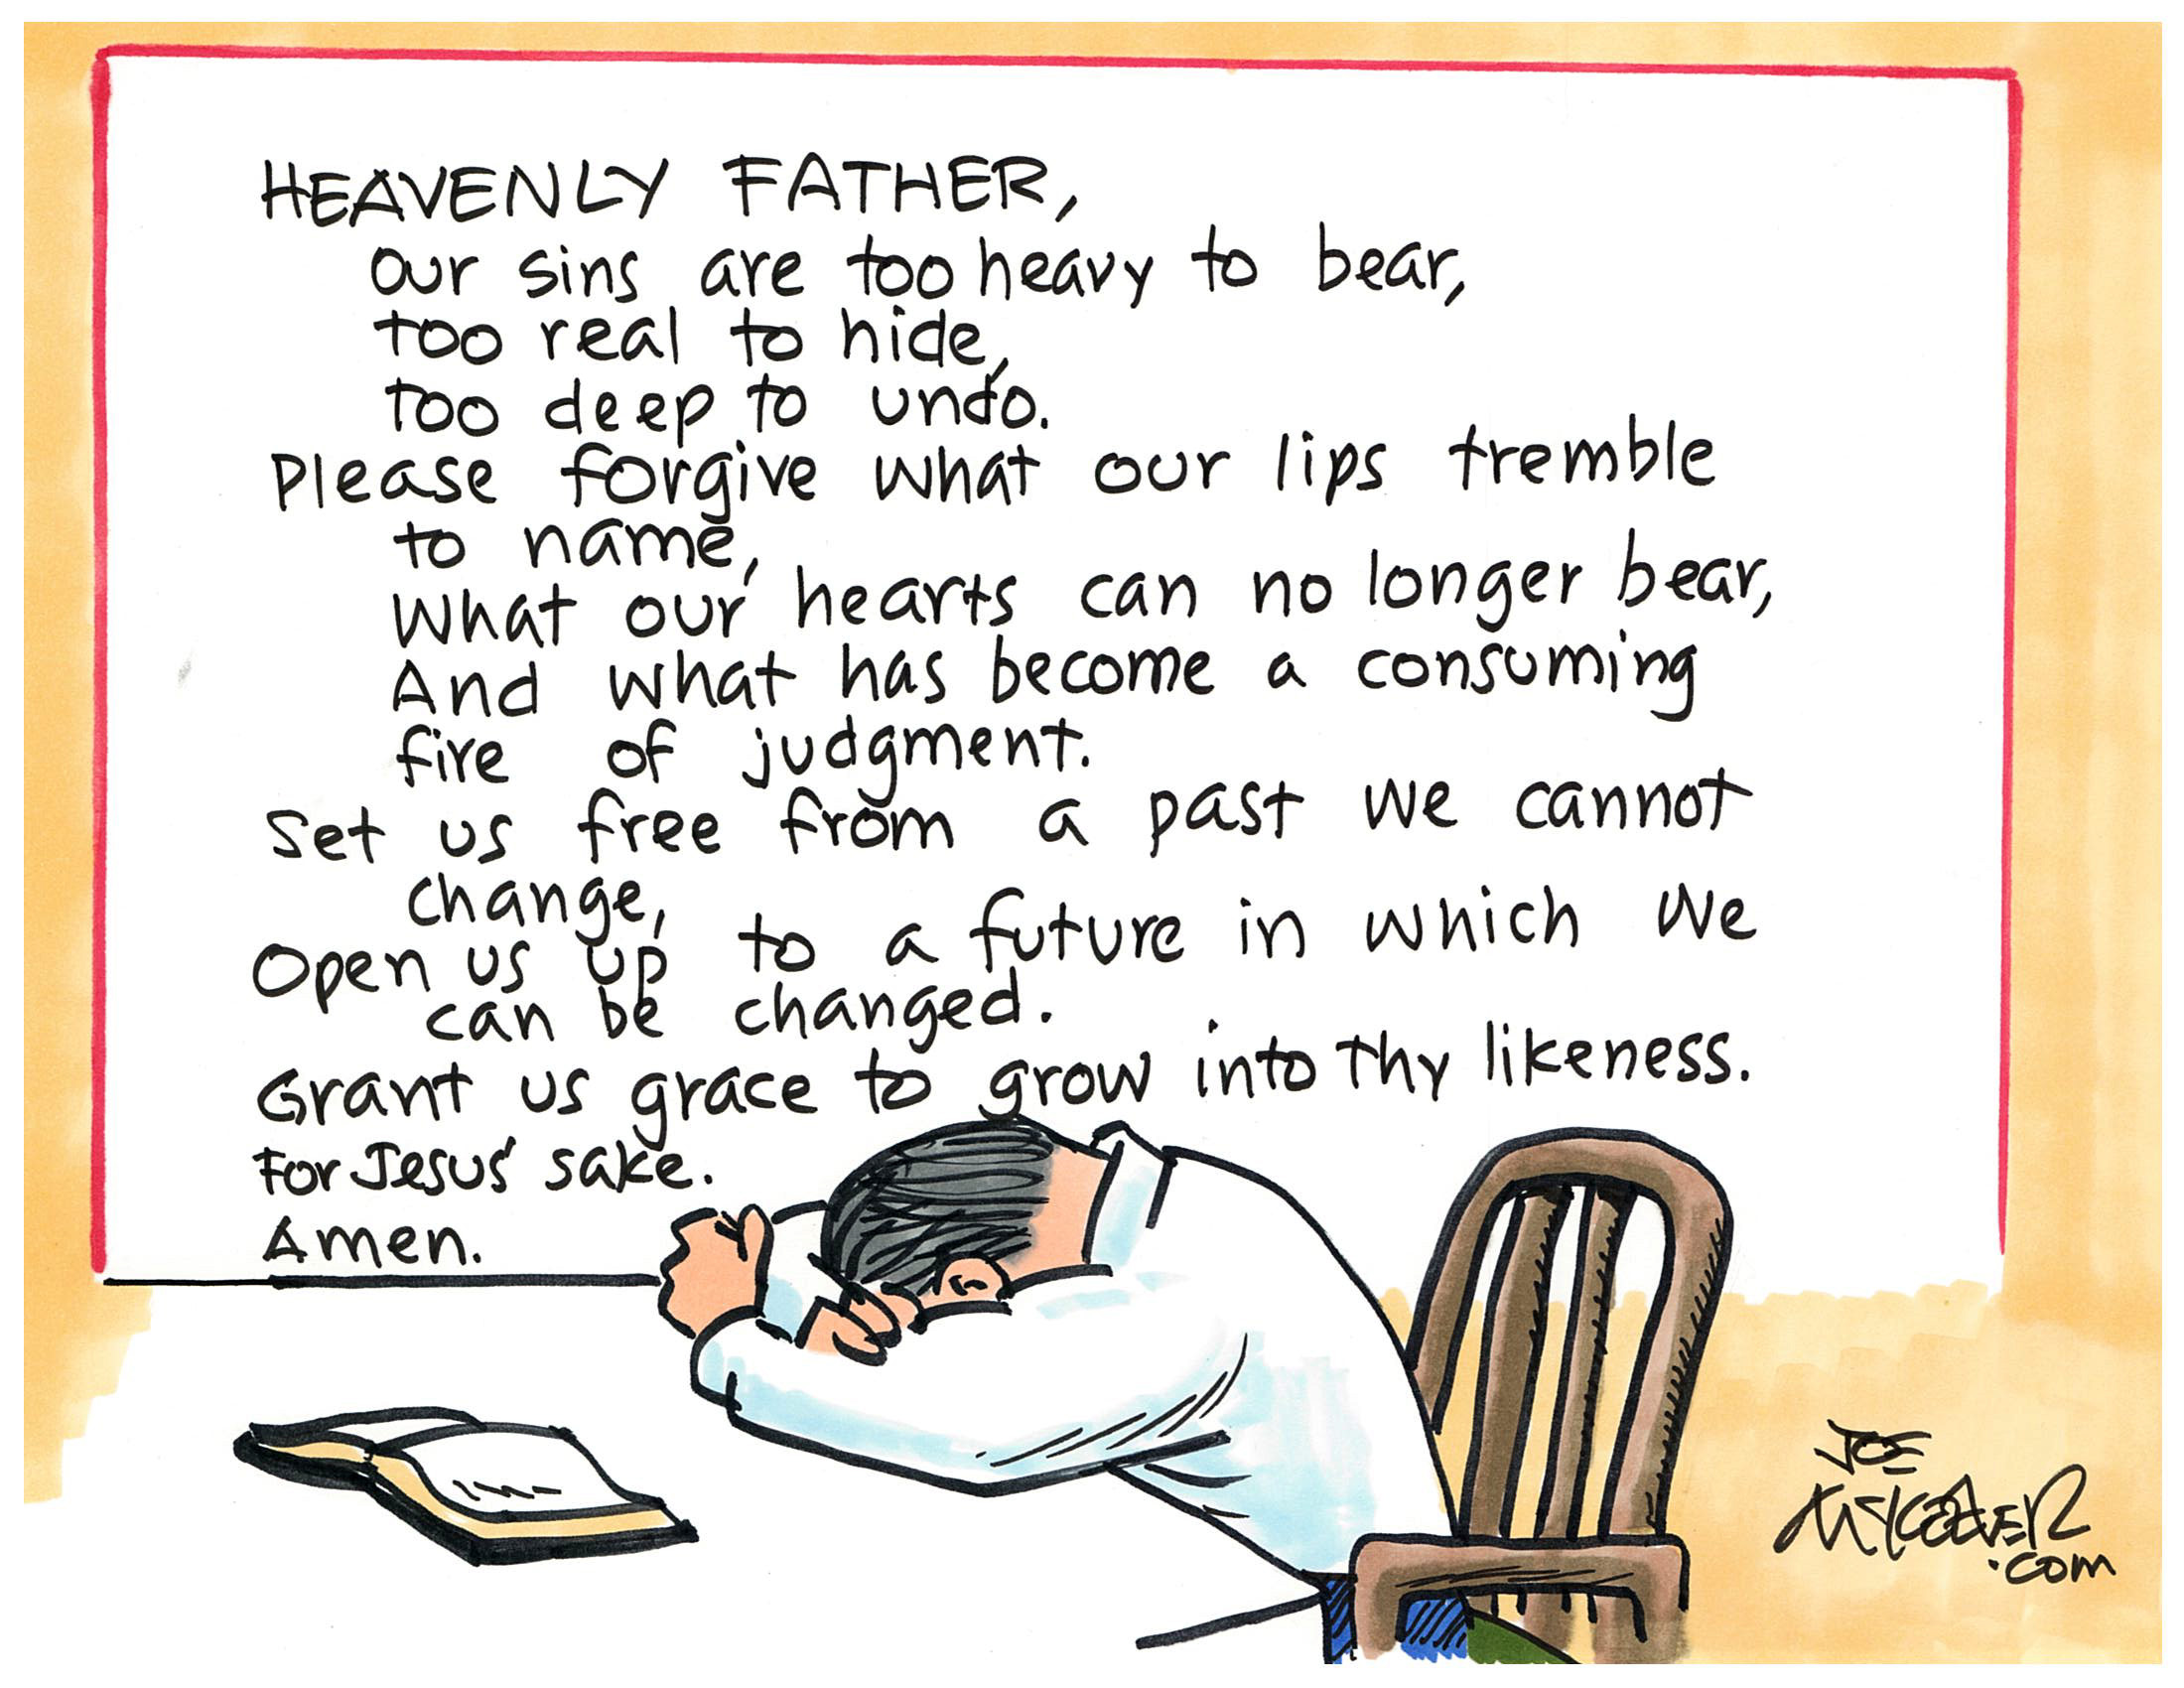 HEAVENLY FATHER,
our sins are too heavy to bear,
too real to hide,
too deep to undo.
Please forgive what our lips tremble
to name,
What our hearts can no longer bear,
And what has become a consuming
fire of judgment.
Set us free from a past we cannot
change,
Open us up to a future in which we
can be changed.
Grant us grace to grow into thy likeness.
For Jesus' sake.
Amen.
JOE
McKEEVER
.com